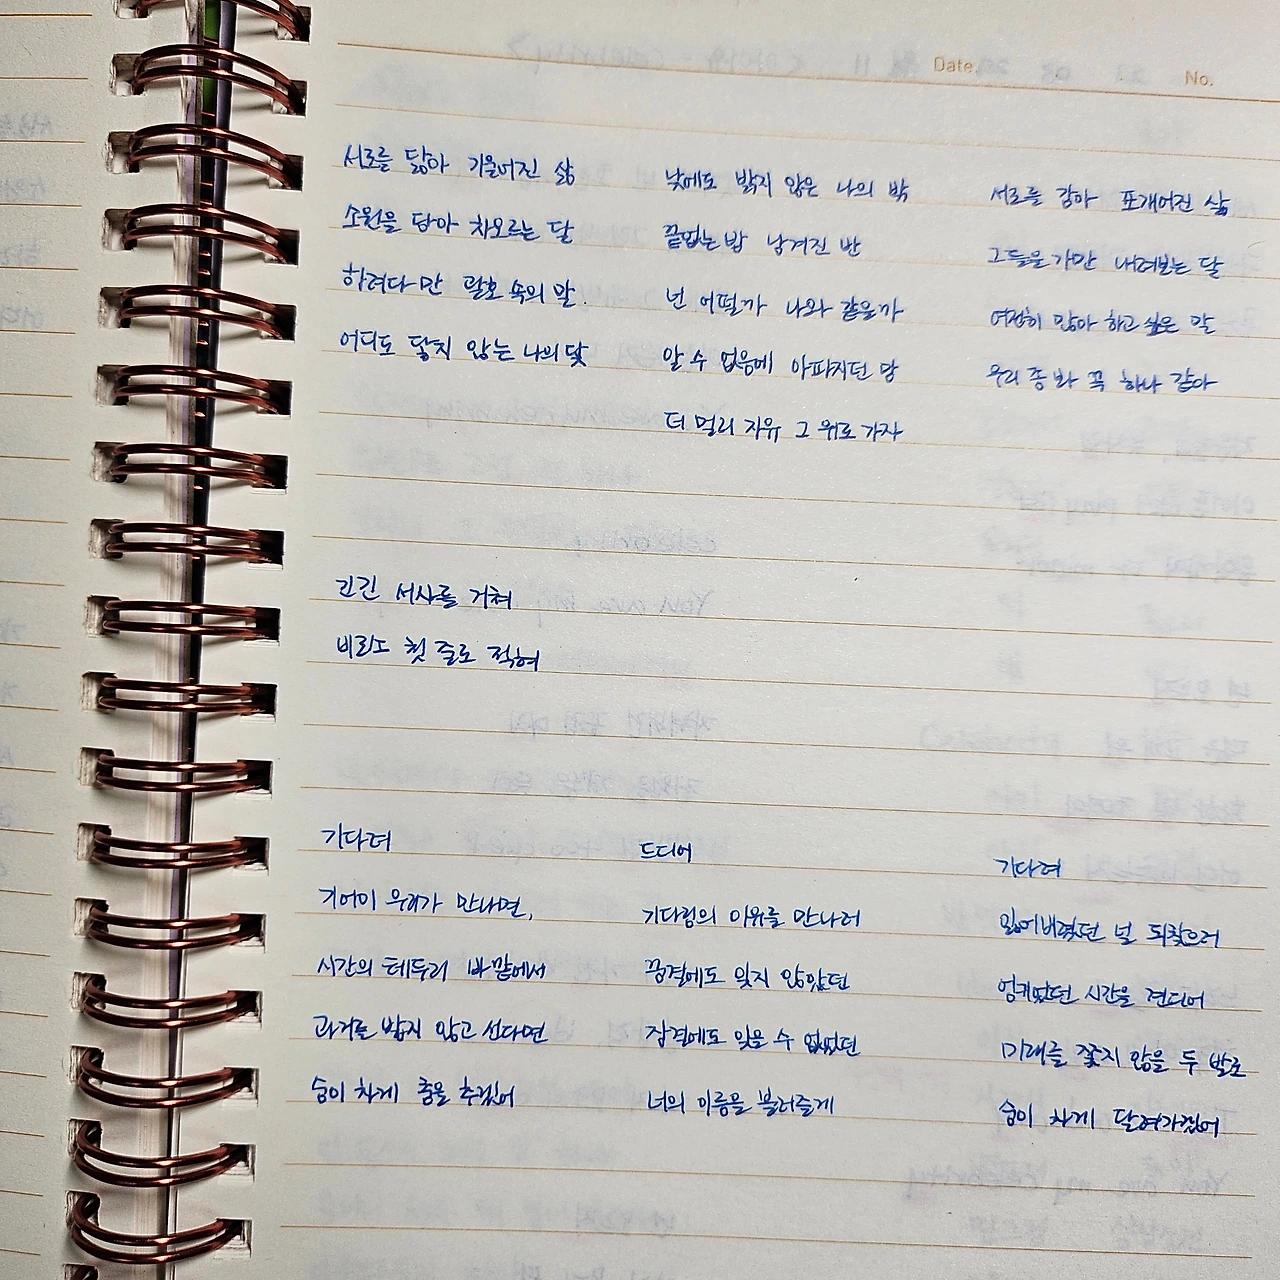 Date.
No.
서로를 닮아 기울어진 삶
소원을 담아 차오르는 달
하려다 만 괄호 속의 말
어디도 닿지 않는 나의 닻
낮에도 밝지 않은 나의 밖
끝없는 밤 남겨진 반
넌 어떨까 나와 같을까
알 수 없음에 아파지던 맘
더 멀리 자유 그 위로 가자
서로를 감아 포개어진 삶
그들을 가만 내려보는 달
여전히 많아 하고 싶은 말
우리 좀 봐 꼭 하나 같아
긴긴 서사를 거쳐
비로소 첫 줄로 적혀
기다려
기어이 우리가 만나면,
시간의 테두리 바깥에서
과거를 밟지 않고 선다면
숨이 차게 춤을 추겠어
드디어
기다림의 이유를 만나러
꿈결에도 잊지 않았던
잠결에도 잊을 수 없었던
너의 이름을 불러줄게
기다려
잃어버렸던 널 되찾으러
엉키었던 시간을 견디어
미래를 쫓지 않을 두 발로
숨이 차게 달려가겠어